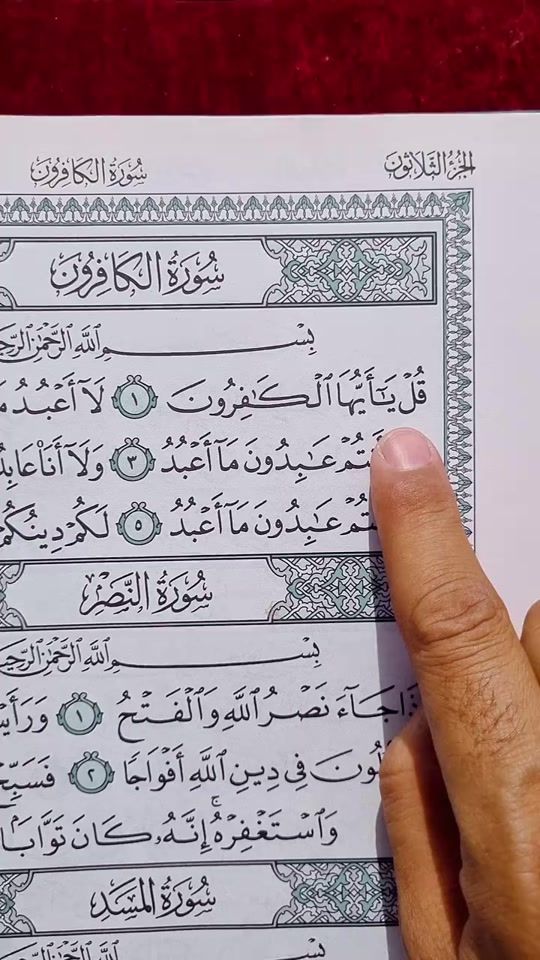 الجُزْءُ الثَّلَاثُونَ
سُورَةُ الكَافِرُونَ
سُورَةُ الكَافِرُونَ
بِسْمِ اللَّهِ الرَّحْمَٰنِ
قُلْ يَٰٓأَيُّهَا ٱلْكَٰفِرُونَ ١ لَآ أَعْبُدُ
عَٰبِدُونَ مَآ أَعْبُدُ ٣ وَلَآ أَنَا۠
عَٰبِدُونَ مَآ أَعْبُدُ ٥ لَكُمْ دِينُكُمْ
سُورَةُ النَّصْرِ
بِسْمِ اللَّهِ الرَّحْمَٰنِ
جَآءَ نَصْرُ ٱللَّهِ وَٱلْفَتْحُ ١
فِى دِينِ ٱللَّهِ أَفْوَاجًا ٢
وَٱسْتَغْفِرْهُ ۚ إِنَّهُۥ كَانَ تَوَّابًۢا
سُورَةُ المَسَدِ